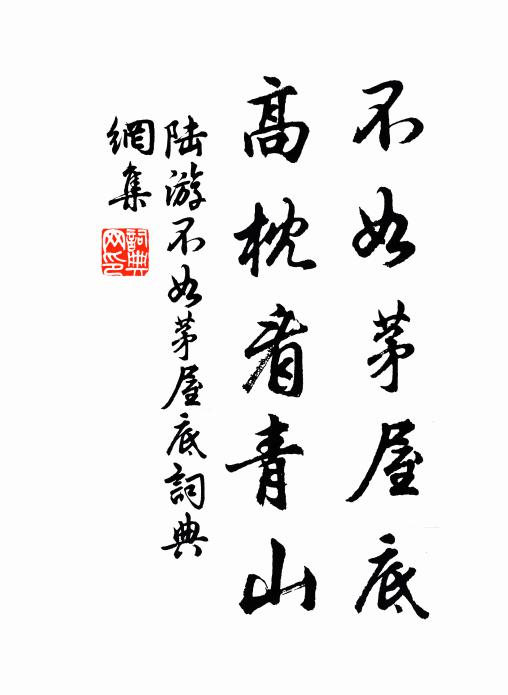 不如茅屋底
高枕看青山
陆游不如茅屋底詞典
網集
詞典
网印